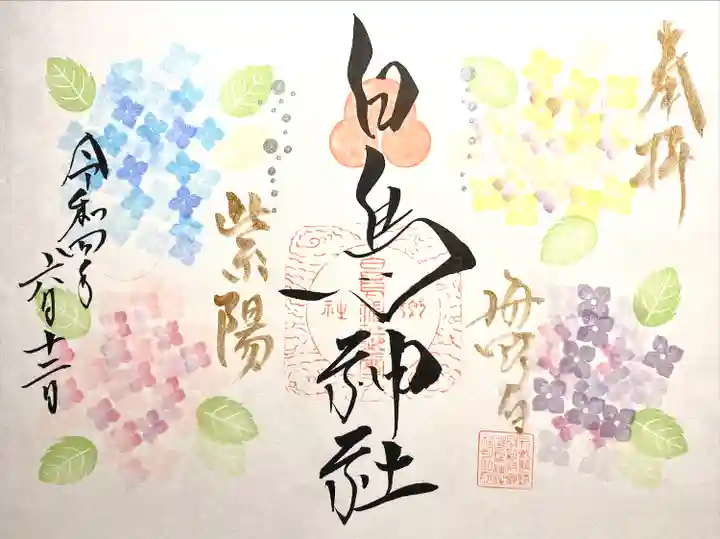 奉拝
海野
白鳥神社
紫陽
令和四年
六月十二日